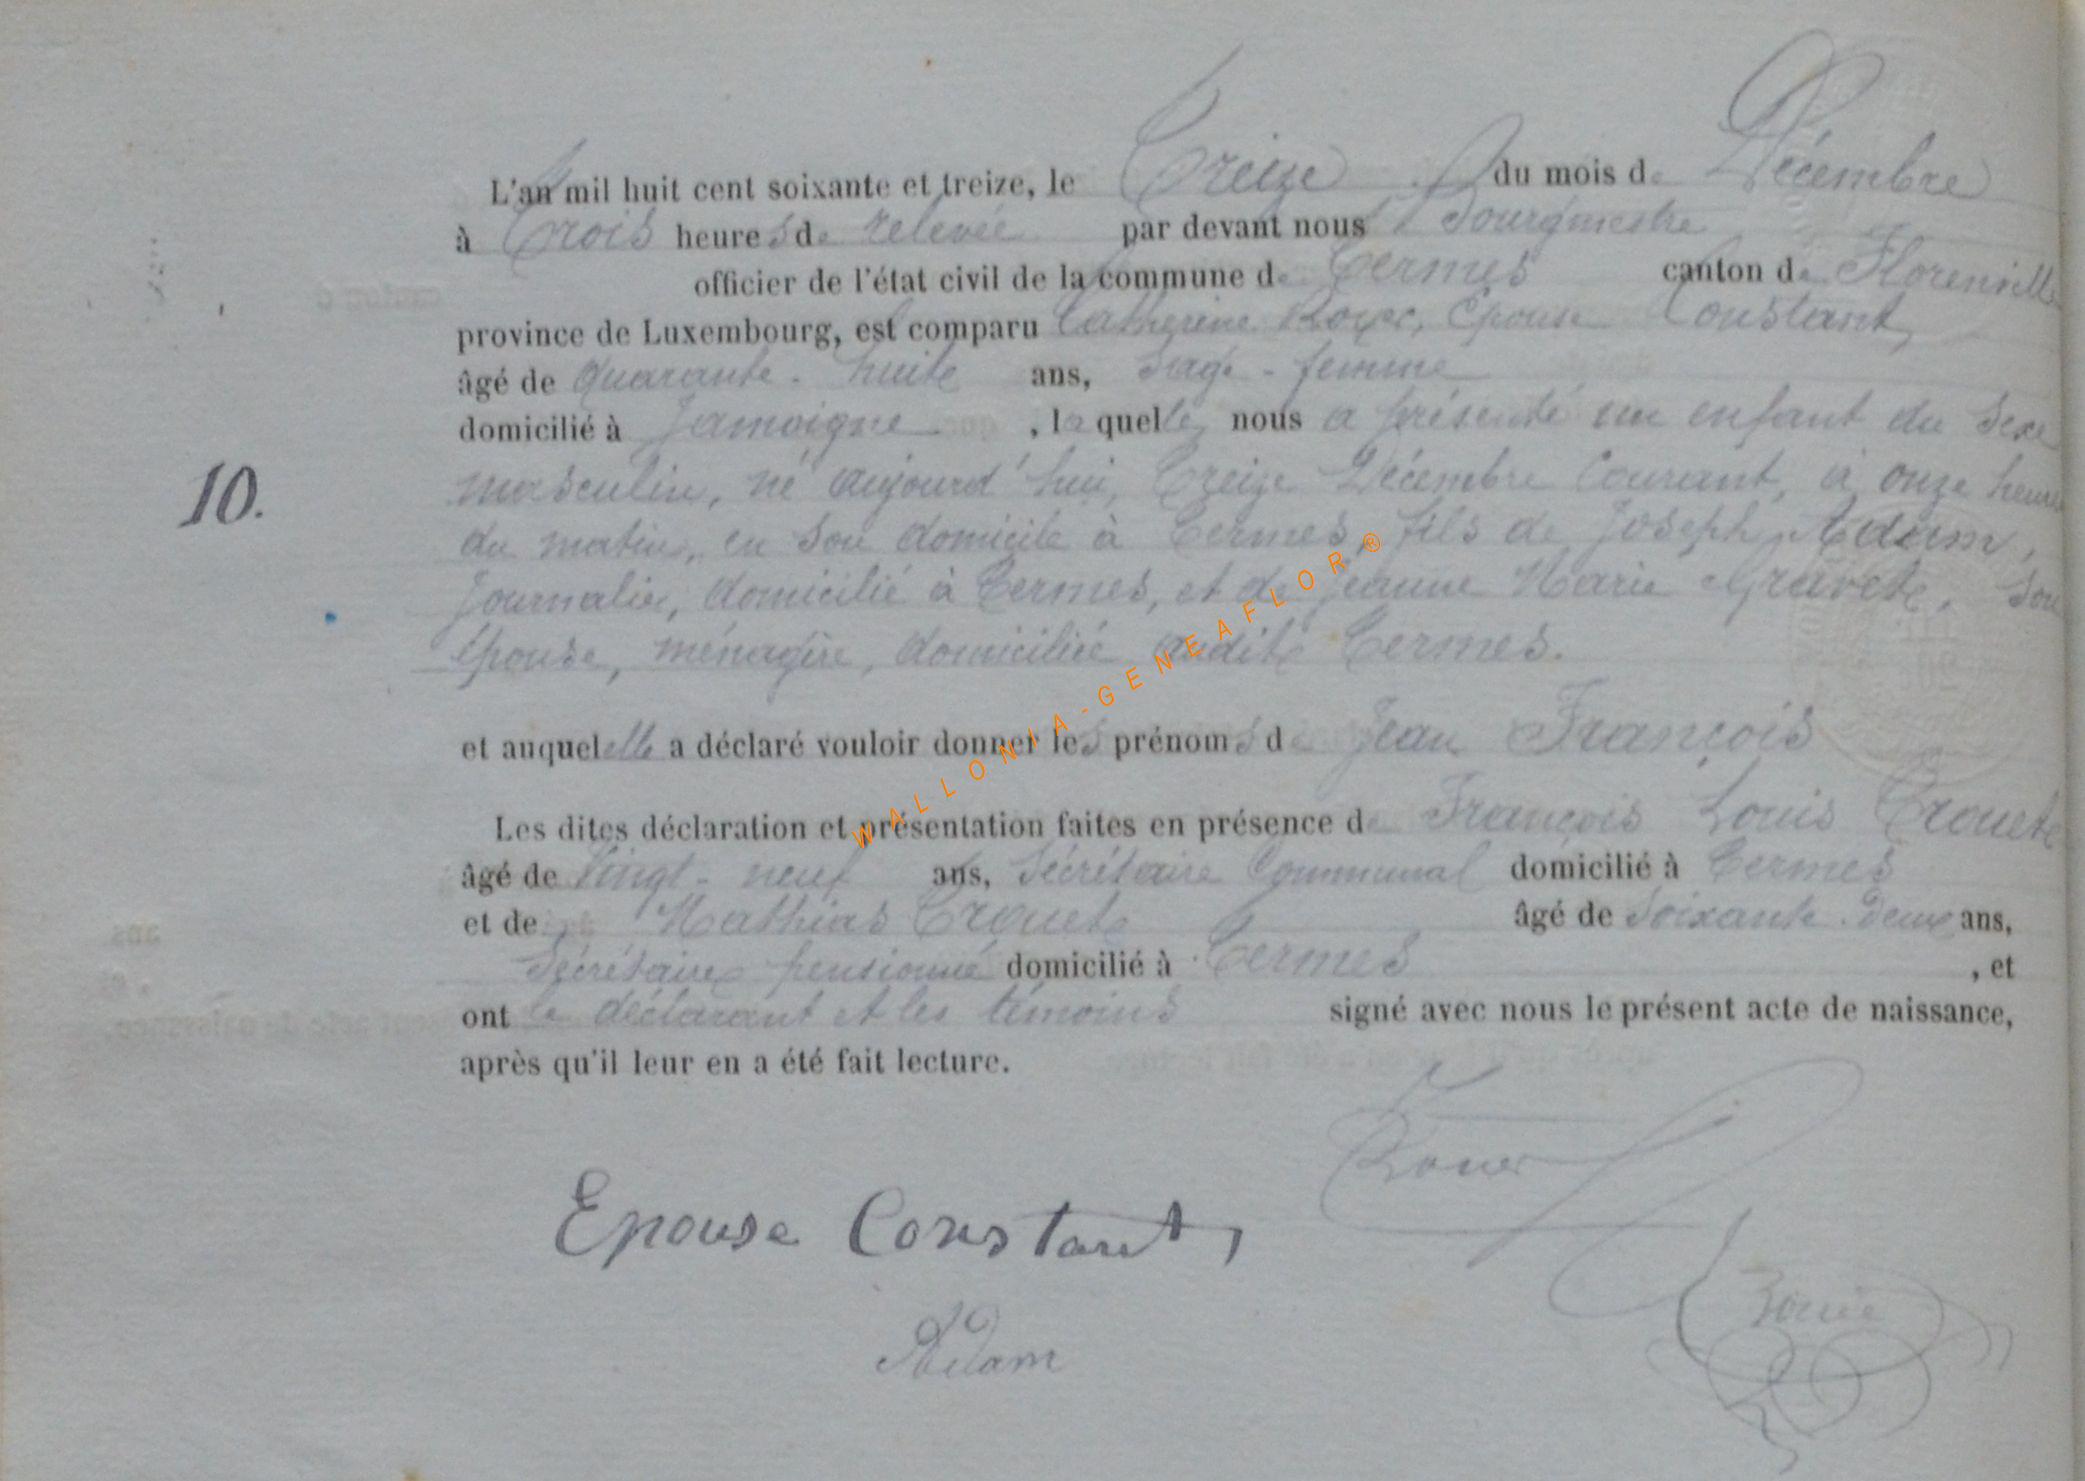 L'an mil huit cent soixante et treize, le Treize du mois de Décembre
à Trois heures de relevée par devant nous Bourgmestre
officier de l'état civil de la commune de Termes canton de Florenville
province de Luxembourg, est comparu Catherine Royer, Epouse Constant,
âgé de quarante-huit ans, Sage-femme
domicilié à Jamoigne, laquelle, nous a présenté un enfant du Sexe
10.
masculin, né aujourd'hui, Treize Décembre Courant, à onze heures
du matin, en son domicile à Termes, fils de Joseph Adam,
Journalier, domicilié à Termes, et de Jeanne Marie Gravet, son
épouse, ménagère, domiciliée audit Termes.
et auquel elle a déclaré vouloir donner les prénoms de Jean François
Les dites déclaration et présentation faites en présence de François Louis
âgé de Vingt-neuf ans, Sécrétaire Communal domicilié à Termes
et de Mathias âgé de Soixante-deux ans,
Sécrétaire pensionné domicilié à Termes, et
ont le déclarant et les témoins signé avec nous le présent acte de naissance,
après qu'il leur en a été fait lecture.
Epouse Constant,
Adam
WALLONIA-GENEAFLOR®